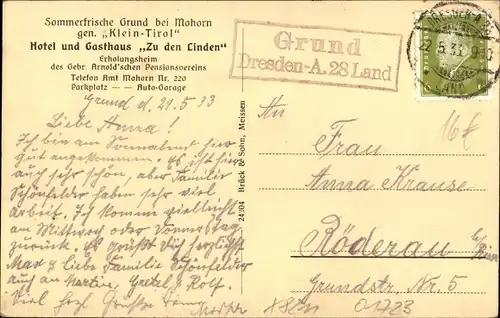 Sommerfrische Grund bei Mohorn
gen. „Klein-Tirol"
Hotel und Gasthaus „Zu den Linden"
Erholungsheim
des Gebr. Arnold'schen Pensionsvereins
Telefon Amt Mohorn Nr. 220
Parkplatz — — Auto-Garage
Grund
Dresden-A. 28 Land
Grund d. 21.5.33
Liebe Anna!
Ich bin am Sonnabend hier
gut angekommen. Es ist hier
auch sehr schön, aber Familie
Schönfelder haben sehr viel
Arbeit. Ich komme vielleicht
am Mittwoch oder Donnerstag
zurück. Es grüßt Dich herzlichst
Max & liebe Familie Schönfelder
auch an Martin, Gretel & Rolf.
Viel herzl. Grüße
24304 Brück & Sohn, Meissen
16€
Frau
Anna Krause
Röderau
Grundstr. Nr. 5
01723